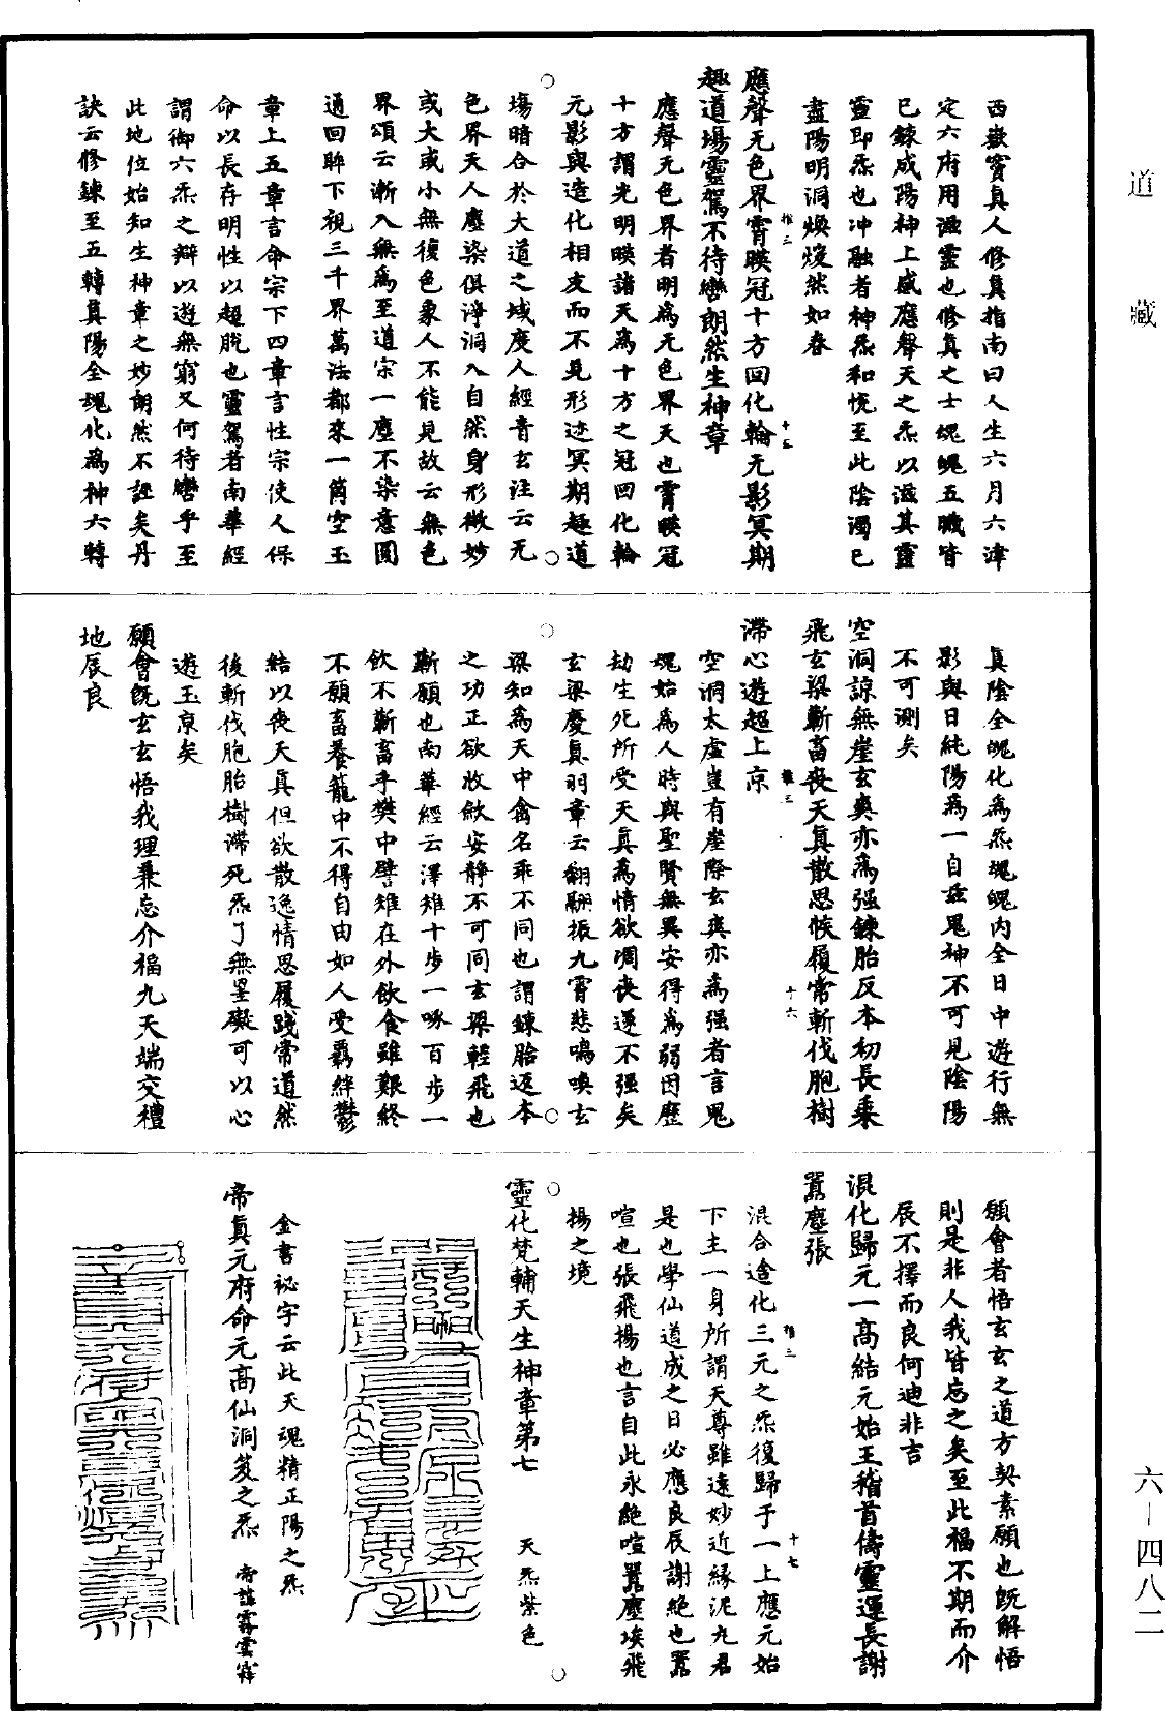 道藏
西嶽竇真人修真指南曰人生六月六津
定六府用滋靈也修真之士魂魄五臟皆
已鍊成陽神上感應聲天之炁以滋其靈
靈即炁也冲融者神炁和悅至此陰濁已
盡陽明洞煥煖然如春
應聲无色界霄暎冠十方回化輪无影冥期
趣道場靈駕不待轡朗然生神章
應聲无色界者明為无色界天也霄暎冠
十方謂光明暎諸天為十方之冠回化輪
元影與造化相友而不見形迹冥期趣道
塲暗合於大道之域度人經青玄注云无
色界天人塵染俱淨洞入自然身形微妙
或大或小無復色象人不能見故云無色
界頌云漸入無為至道宗一塵不染意圓
通回眸下視三千界萬法都來一箇空玉
章上五章言命宗下四章言性宗使人保
命以長存明性以超脫也靈駕者南華經
謂御六炁之辯以遊無窮又何待轡乎至
此地位始知生神章之妙朗然不誣矣丹
訣云修鍊至五轉真陽全魂化為神六轉
真陰全魄化為炁魂魄內全日中遊行無
影與日純陽為一自茲鬼神不可見陰陽
不可測矣
空洞諒無崖玄爽亦為强鍊胎反本初長乘
飛玄梁蘄畜喪天真散思候履常斬伐胞樹
滯心遊超上京
空洞太虛豈有崖際玄爽亦為强者言鬼
魂始為人時與聖賢無異安得為弱因歷
劫生死所受天真為情欲凋喪遂不强矣
玄梁慶真羽章云翻翮振九霄悲鳴喚玄
梁知為天中禽名乖不同也謂鍊胎返本
之功正欲收斂安靜不可同玄梁輕飛也
蘄願也南華經云澤雉十步一啄百步一
飲不蘄畜乎樊中譬雉在外飲食雖艱終
不願畜養籠中不得自由如人受羈絆鬱
結以喪天真但欲散逸情思履踐常道然
後斬伐胞胎樹滯死炁了無罣礙可以心
遊玉京矣
願會既玄玄悟我理兼忘介福九天端交禮
地辰良
願會者悟玄玄之道方契素願也既解悟
則是非人我皆忘之矣至此福不期而介
辰不擇而良何迪非吉
混化歸元一高結元始王稽首儔靈運長謝
囂塵張
混合造化三元之炁復歸于一上應元始
下主一身所謂天尊雖遠妙近緣泥丸君
是也學仙道成之日必應良辰謝絕也囂
喧也張飛揚也言自此永絕喧囂塵埃飛
揚之境
靈化梵輔天生神章第七 天炁紫色
金書祕字云此天魂精正陽之炁
帝真元府命元高仙洞笈之炁 帝諱霧雲
六—四八二